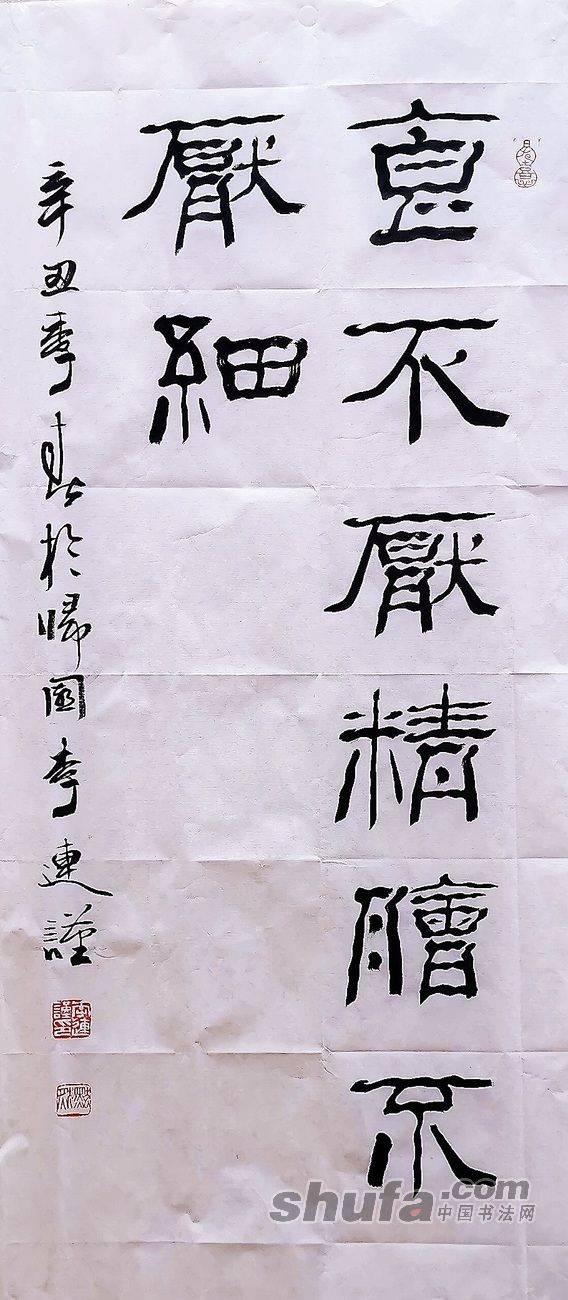 食不厭精膾不
厭細
辛丑季春於歸園李連謹
shufa.com
中国书法网